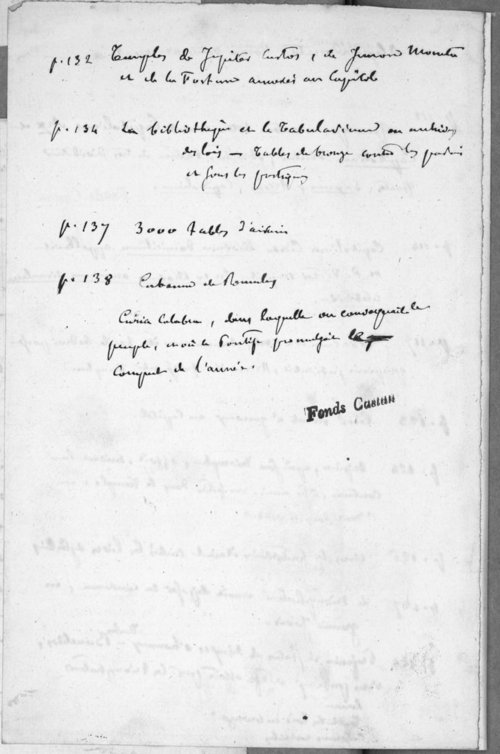 p. 132 Temples de Jupiter Custos, de Junon Moneta
et de la Fortune annexés au Capitole
p. 134 La bibliothèque et le Tabularium ou archives
des lois — Tables de bronze contre les parois
et sous les portiques
p. 137 3000 tables d'airain
p. 138 Cabane de Romulus
Curia Calabra, dans laquelle on convoquait le
peuple, et où le Pontife promulguait le
comput de l'année.
Fonds Castan